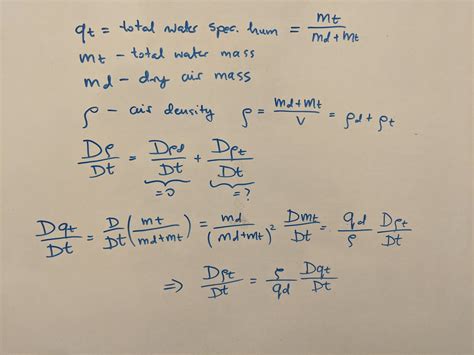 qt = total water spec. hum = mt / (md+mt)
mt – total water mass
md – dry air mass
ρ – air density ρ = (md+mt) / V = ρd + ρt
Dρ/Dt = Dρd/Dt + Dρt/Dt
=0 =?
Dqt/Dt = D/Dt (mt / (md+mt)) = md / (md+mt)² Dmt/Dt = qd/ρ Dρt/Dt
⇒ Dρt/Dt = ρ/qd Dqt/Dt